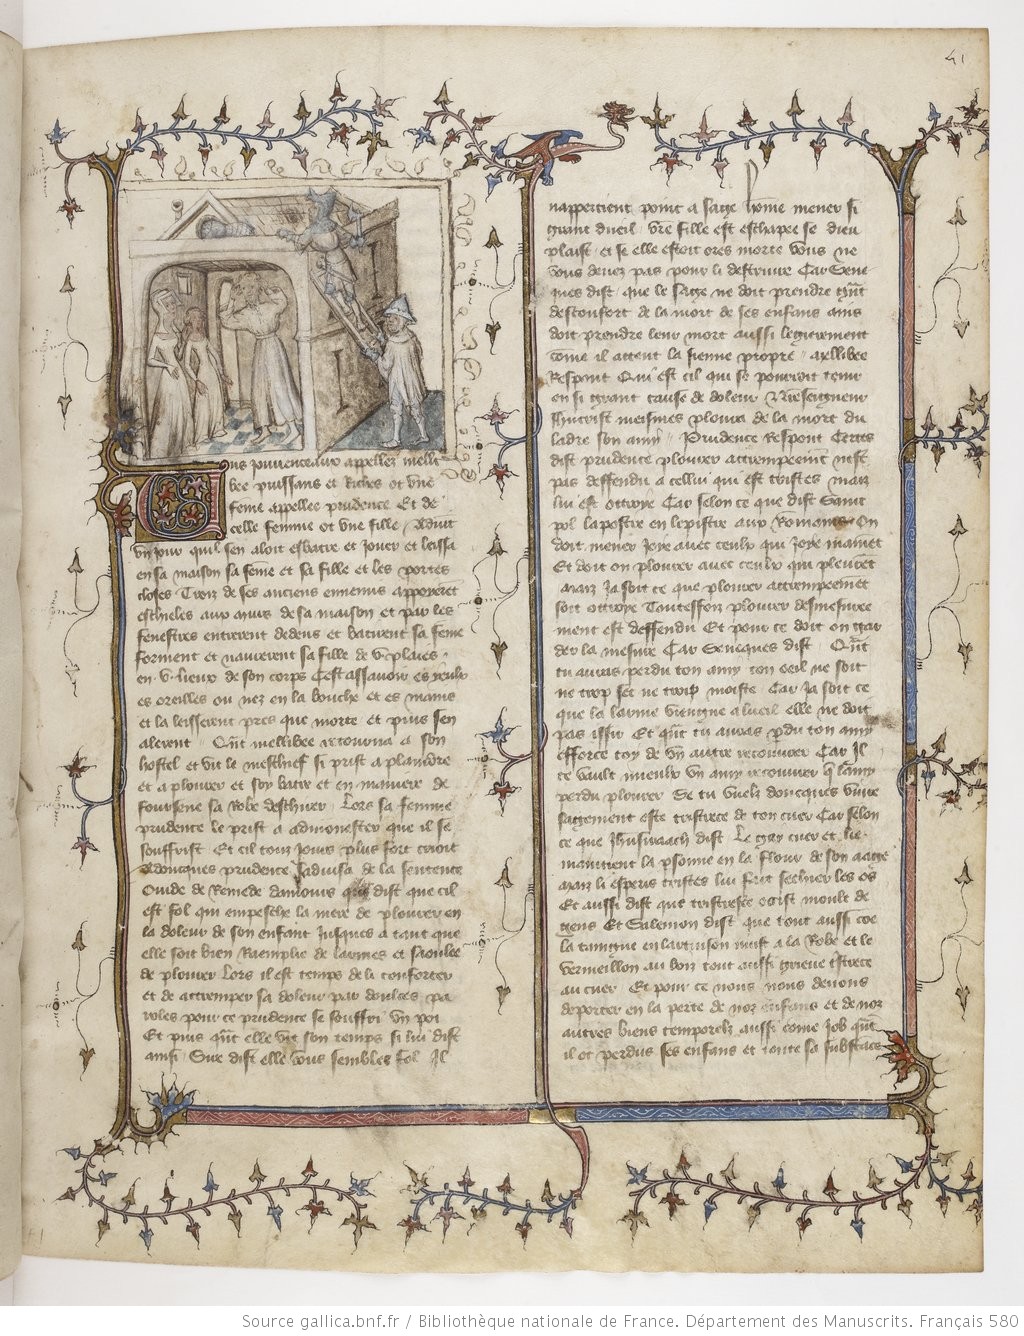 41
Uns jouvenceaux appellez melli
bee puissans et riches ot une
feme appellee prudence Et de
celle femme ot une fille Advint
un jour quil sen aloit esbatre et jouer et leissa
en sa maison sa feme et sa fille et les portes
closes Trois de ses anciens ennemis appoierent
eschieles aux murs de sa maison et par les
fenestres entrerent dedens et batirent sa feme
forment et navrerent sa fille de v plaies
en v lieux de son corps Cest assavoir es yeulx
es oreilles ou nez en la bouche et es mains
et la leisserent pres que morte et puis sen
alerent Qnt mellibee retourna a son
hostel et vit le meschief si prist a plaindre
et a plourer et soy batre et en maniere de
foursene sa robe deschirer Lors sa femme
prudence le prist a admonester que il se
souffrist Et cil touz jours plus fort crioit
Adoncques prudence sadvisa de la sentence
Ovide de remede damours qui dist que cil
est fol qui empesche la mere de plourer en
la doleur de son enfant jusques a tant que
elle soit bien raemplie de larmes et saoulee
de plourer Lors il est temps de la conforter
et de attremper sa doleur par doulces pa
roles pour ce prudence se souffri un poi
Et puis qnt elle vit son temps si lui dist
ainsi Sire dist elle vous sembles fol Il
nappertient point a sage home mener si
grant dueil vre fille est eschapee se dieu
plaist et se elle estoit ores morte vous ne
vous devez pas pour li destruire Car Sene
ques dist que le sage ne doit prendre grant
desconfort de la mort de ses enfans ains
doit prendre leur mort aussi legierement
come il attent la sienne propre Mellibee
respont Qui est cil qui se pourroit tenir
en si grant cause de doleur nreseigneur
Jhucrist meismes ploura de la mort du
ladre son amy Prudence respont Certes
dist prudence plourer attrempeemt nest
pas deffendu a cellui qui est tristes maiz
lui est ottroye Car selon ce que dist Saint
pol lapostre en lepistre aux Romains On
doit mener joye avec ceulx qui joye mainet
Et doit on plourer avec ceulx qui pleurct
Maiz ja soit ce que plourer attrempeemet
soit ottroye Toutesfoiz plourer desmesuree
ment est deffendu Et pour ce doit on gar
der la mesure Car Senecques dist Qnt
tu auras perdu ton amy ton oeil ne soit
ne trop sec ne trop moiste Car ja soit ce
que la larme viengne a lueil elle ne doit
pas issir Et qnt tu auras pdu ton amy
efforce toy de un autre recouvrer Car il
te vault mieulx un amy recouvrer q lamy
perdu plourer Se tu veulz doncques vivre
sagement oste tristece de ton cuer Car selon
ce que Jhusiraach dist Le gay cuer et lie
maintient la psonne en la flour de son aage
Maiz li esperis tristes lui fait sechier les os
Et aussi dist que tristesce occist moult de
gens Et Salemon dist que tout aussi coe
la taingne en la toison nuist a la robe et le
vermeillon au boiz tout aussi grieve tristece
au cuer Et pour ce nous nous devons
deporter en la perte de noz enfans et de noz
autres biens temporelz aussi come Job qnt
il ot perdus ses enfans et toute sa substance
Source gallica.bnf.fr / Bibliothèque nationale de France. Département des Manuscrits. Français 580